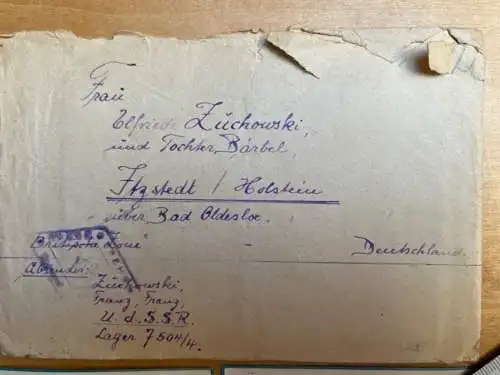 Frau
Elfriede Zuchowski,
und Tochter Bärbel,
Itzstedt / Holstein
über Bad Oldesloe.
"Britische Zone" - Deutschland.
Absender:
Zuchowski,
Franz, Franz,
U. d. S. S. R.
Lager 7504/4.